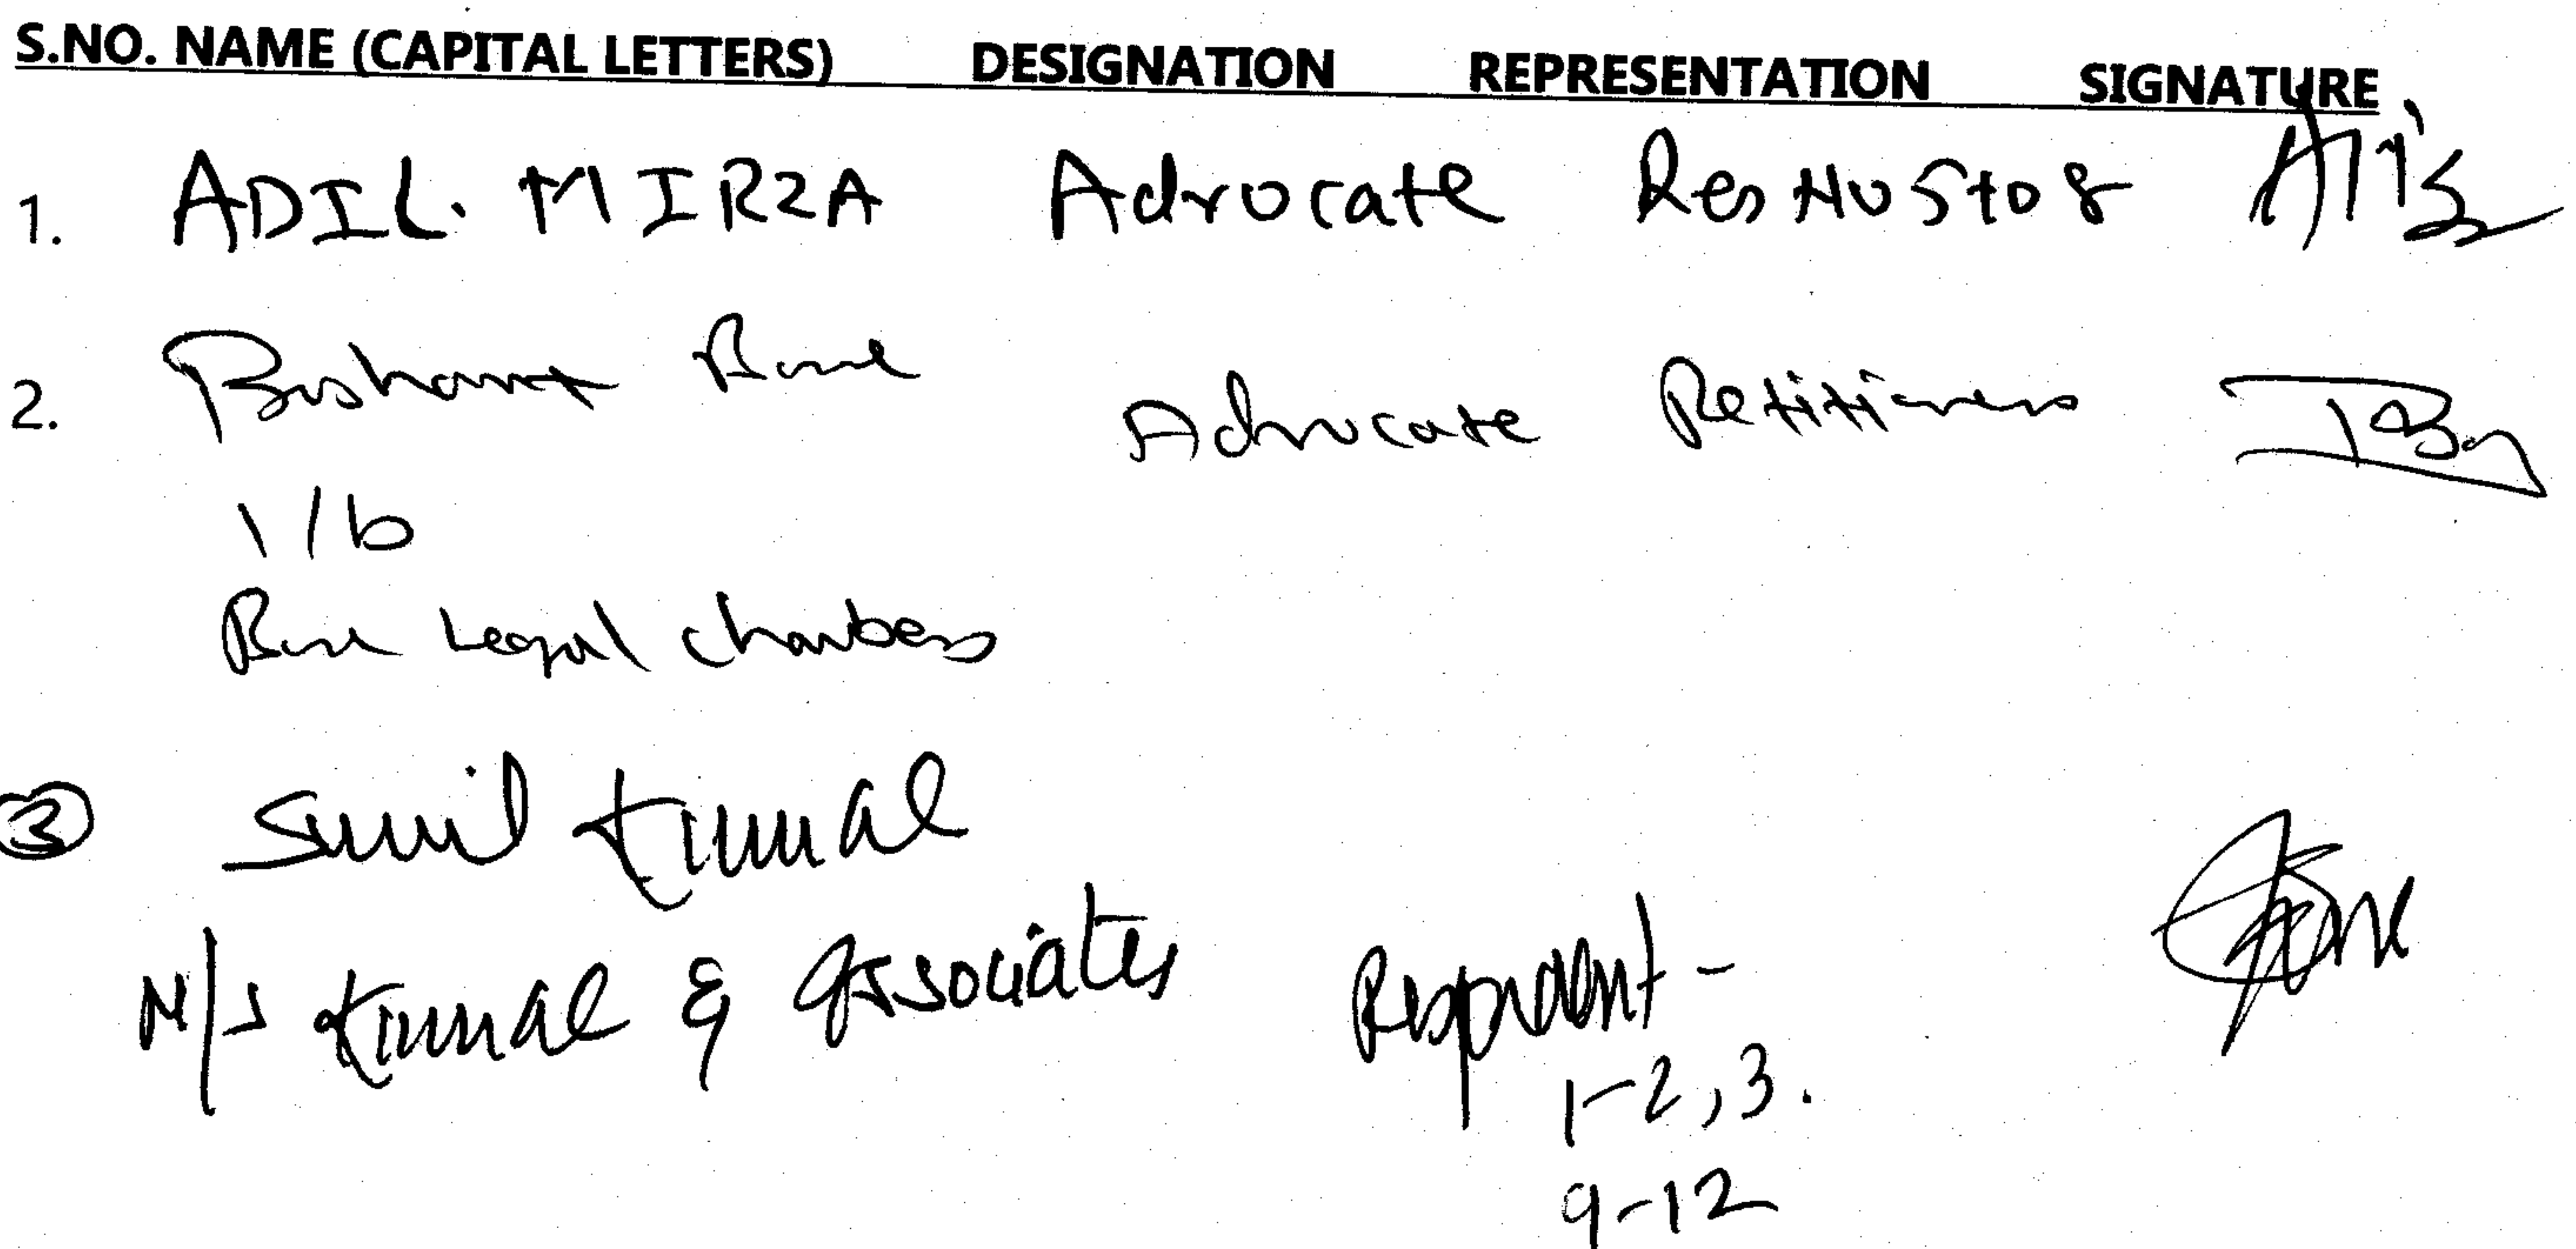 S.NO. NAME (CAPITAL LETTERS) DESIGNATION REPRESENTATION SIGNATURE
1. ADIL. MIRZA Advocate Res No 5 to 8
2. Advocate Petitioners
i/b
Legal Chambers
3 Sunil
M/s & Associates Respondent -
1-2, 3.
9-12